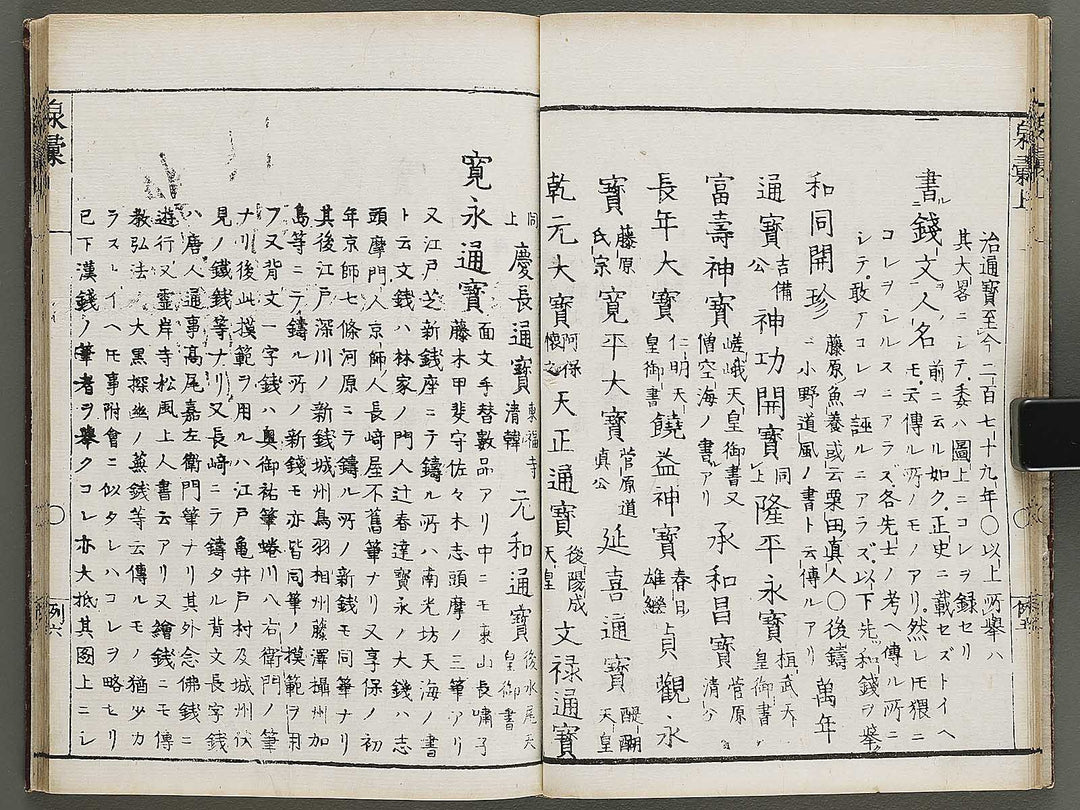 泉彙上
治通寶至今二百七十九年〇以上所擧ハ
其大畧ニシテ委ハ圖上ニコレヲ録セリ
一
書錢文人名 前ニ云ル如ク正史ニ載セズトイヘ
モ云傳ル所ノモノアリ然レトモ猥ニ
コレヲシルスニアラス各先士ノ考ヘ傳ル所ニ
シテ敢テコレヲ誣ルニアラズ以下先和錢ヲ擧
和同開珍 藤原魚養或云粟田真人〇後鑄
ニ小野道風ノ書ト云傳ルアリ 萬年
通寶 吉備公 神功開寶 同上 隆平永寶 桓武天皇御書
富壽神寶 嵯峨天皇御書又僧空海ノ書アリ 承和昌寶 菅原清公
長年大寶 仁明天皇御書 饒益神寶 春日雄繼 貞觀永
寶 藤原氏宗 寛平大寶 菅原道真公 延喜通寶 醍醐天皇
乾元大寶 阿保懷之 天正通寶 後陽成天皇 文禄通寶
同上 慶長通寶 東福寺清韓 元和通寶 後水尾天皇御書
寛永通寶 面文手替數品アリ中ニモ東山長嘯子
藤木甲斐守佐々木志頭摩ノ三筆アリ
又江戸芝新錢座ニテ鑄ル所ハ南光坊天海ノ書
ト云文錢ハ林家ノ門人辻春達寶永ノ大錢ハ志
頭摩門人京師人長﨑屋不舊筆ナリ又享保ノ初
年京師七條河原ニテ鑄ル所ノ新錢モ同筆ナリ
其後江戸深川ノ新錢城州鳥羽相州藤澤攝州加
島等ニテ鑄ル所ノ新錢モ亦皆同筆ノ摸範ヲ用
フ又背文一字錢ハ奥御祐筆蜷川八右衛門ノ筆
ナリ後此摸範ヲ用ルハ江戸亀井戸村及城州伏
見ノ鐵錢等ナリ又長﨑ニテ鑄タル背文長字錢
ハ唐人通事高尾嘉左衛門筆ナリ其外念佛錢ニ
遊行又霊岸寺松風上人書云アリ又繪錢ニモ傳
教弘法大黒探幽ノ蕪錢等云傳ルモノ猶少カ
ラスレイヘトモ事附會ニ似タレハコレヲ略セリ
已下漢錢ノ筆者ヲ擧クコレ亦大抵其圖上ニシ
泉彙
例六